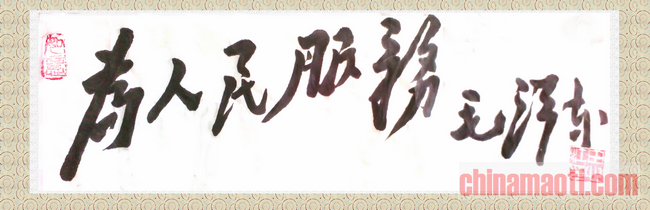 为人民服務
毛泽东
chinamaoti.com